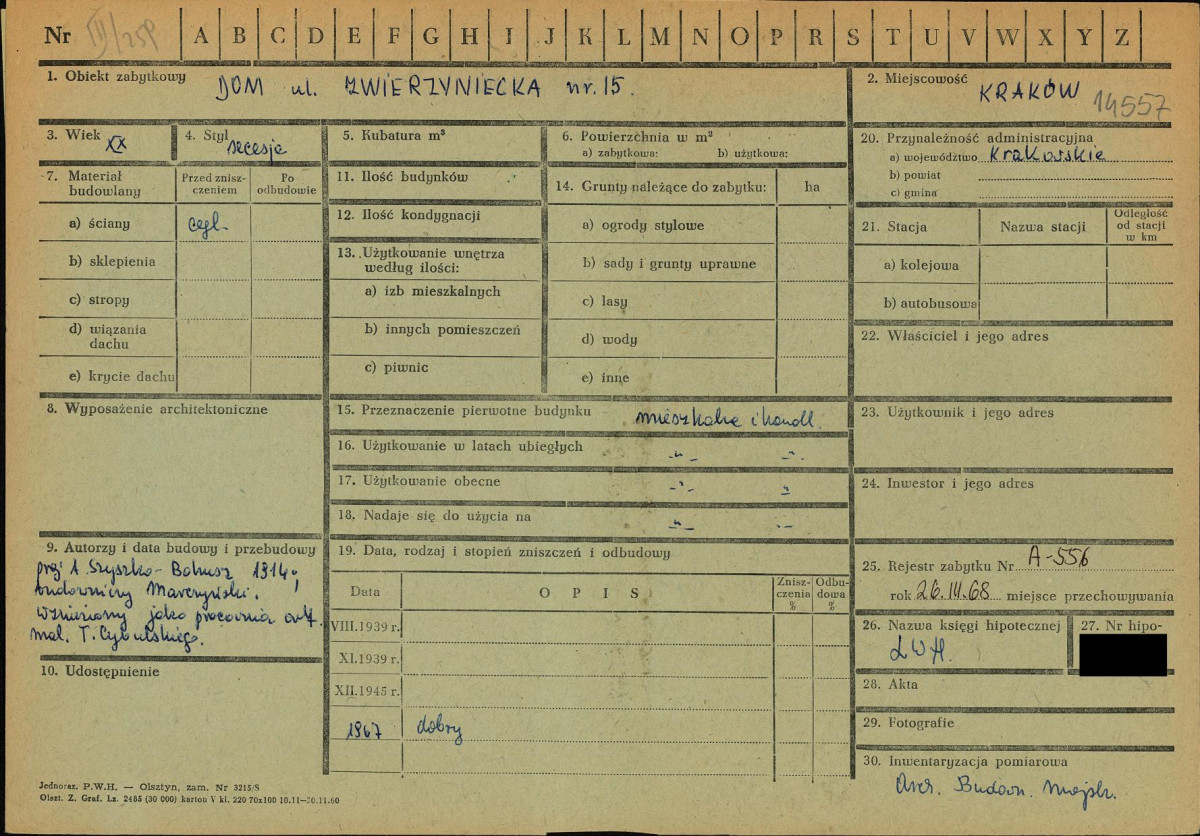 Nr III/259 A B C D E F G H I J K L M N O P R S T U V W X Y Z
1. Obiekt zabytkowy DOM ul. ZWIERZYNIECKA nr. 15.
2. Miejscowość KRAKÓW 14557
3. Wiek XX
4. Styl secesja
5. Kubatura m³
6. Powierzchnia w m²
a) zabytkowa: b) użytkowa:
7. Materiał budowlany
Przed znisz-
czeniem
Po
odbudowie
a) ściany cegł.
b) sklepienia
c) stropy
d) wiązania
dachu
e) krycie dachu
8. Wyposażenie architektoniczne
9. Autorzy i data budowy i przebudowy
proj. A. Szyszko-Bohusz 1914;
budowniczy Marczyński.
wzniesiony jako pracownia art.
mal. T. Cybulskiego.
10. Udostępnienie
11. Ilość budynków
12. Ilość kondygnacji
13. Użytkowanie wnętrza
według ilości:
a) izb mieszkalnych
b) innych pomieszczeń
c) piwnic
14. Grunty należące do zabytku: ha
a) ogrody stylowe
b) sady i grunty uprawne
c) lasy
d) wody
e) inne
15. Przeznaczenie pierwotne budynku mieszkalne i handl.
16. Użytkowanie w latach ubiegłych -"- -"-
17. Użytkowanie obecne -"- "
18. Nadaje się do użycia na -"- -"-
19. Data, rodzaj i stopień zniszczeń i odbudowy
Data OPIS
Znisz-
czenia
%
Odbu-
dowa
%
VIII.1939 r.
XI.1939 r.
XII.1945 r.
1967 dobry
20. Przynależność administracyjna
a) województwo krakowskie
b) powiat
c) gmina
21. Stacja Nazwa stacji
Odległość
od stacji
w km
a) kolejowa
b) autobusowa
22. Właściciel i jego adres
23. Użytkownik i jego adres
24. Inwestor i jego adres
25. Rejestr zabytku Nr A-556
rok 26.III.68 miejsce przechowywania
26. Nazwa księgi hipotecznej
LWH.
27. Nr hipo-
28. Akta
29. Fotografie
30. Inwentaryzacja pomiarowa
Arch. Budown. Miejsk.
Jednoraz. P.W.H. — Olsztyn, zam. Nr 3215/S
Olszt. Z. Graf. Lz. 2485 (30 000) karton V kl. 220 70x100 10.11—30.11.60